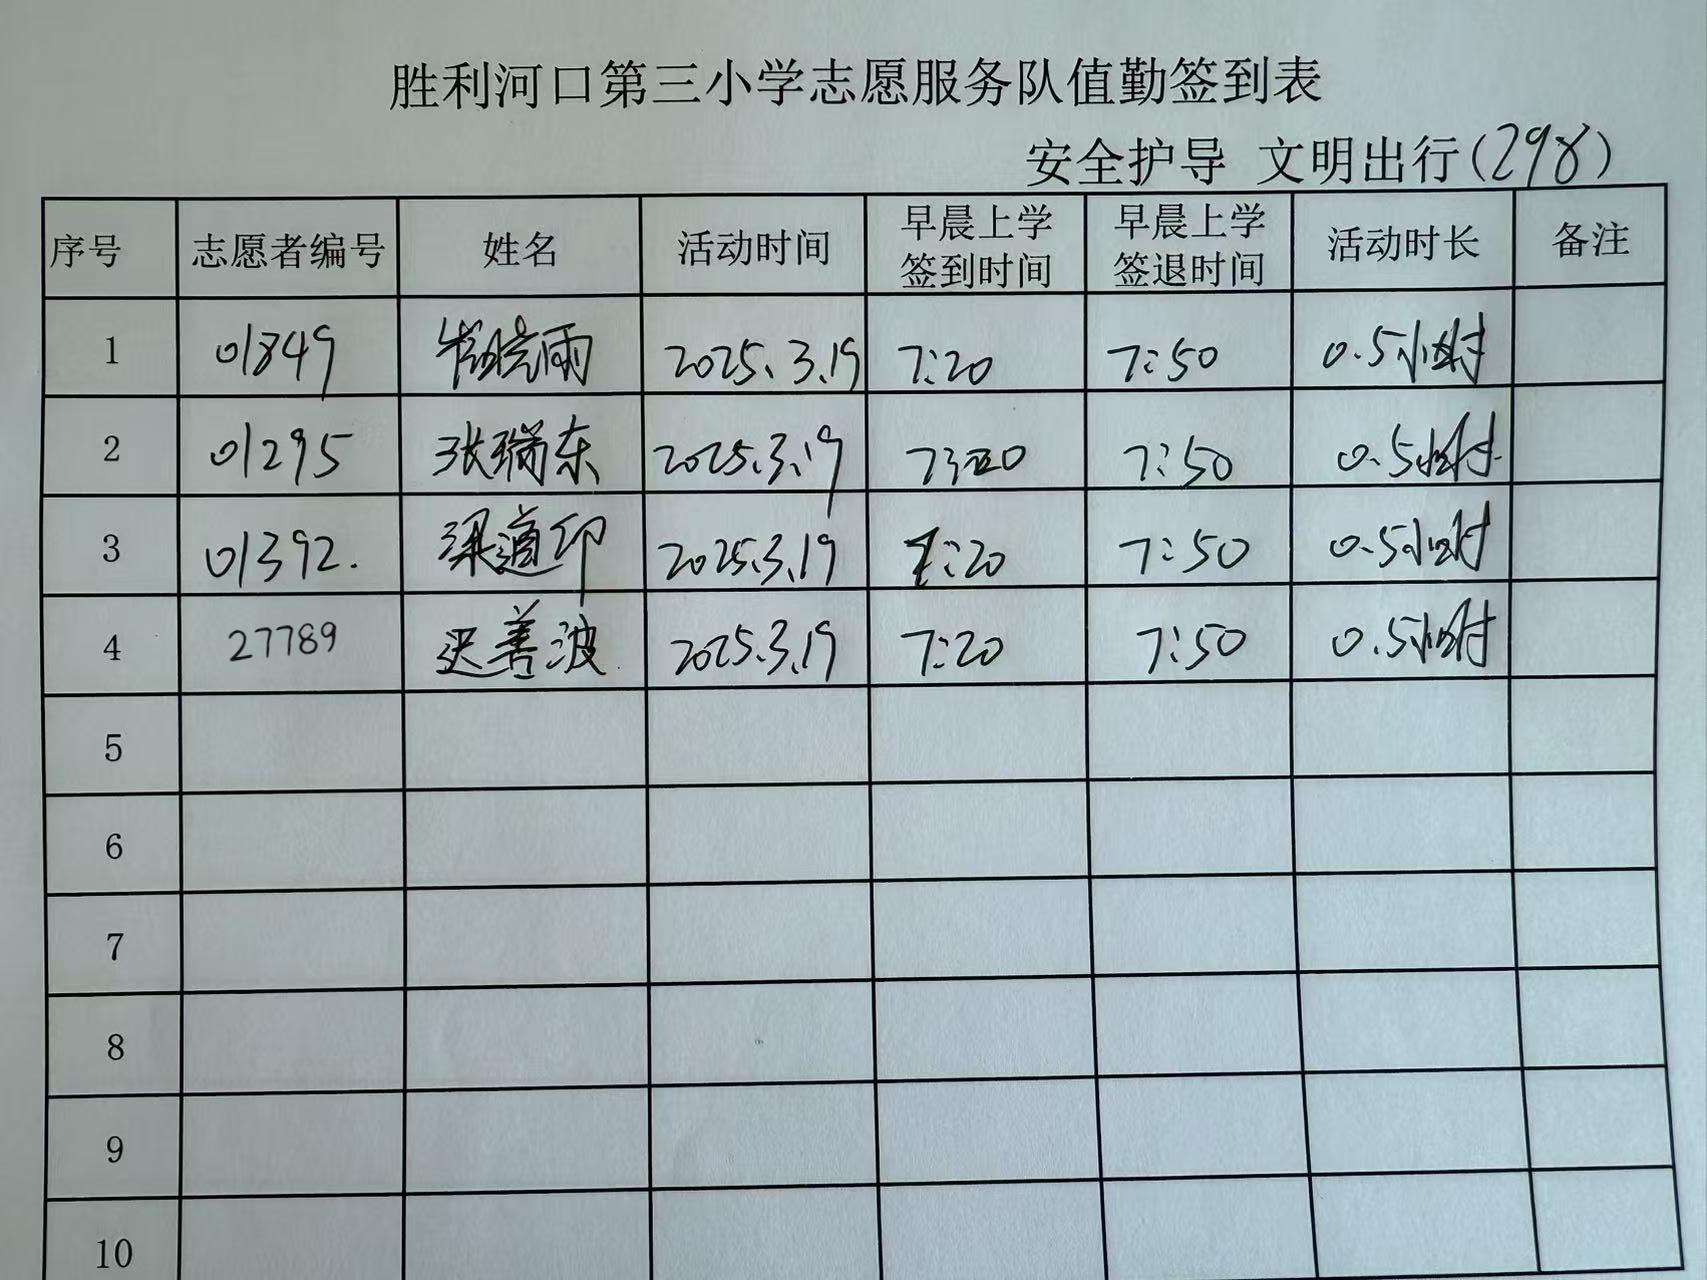 胜利河口第三小学志愿服务队值勤签到表
安全护导 文明出行(298)
序号 志愿者编号 姓名 活动时间 早晨上学签到时间 早晨上学签退时间 活动时长 备注
1 01849 崔晓雨 2025.3.19 7:20 7:50 0.5小时
2 01295 张瑞东 2025.3.19 7:20 7:50 0.5小时
3 01392. 梁道印 2025.3.19 7:20 7:50 0.5小时
4 27789 迟善波 2025.3.19 7:20 7:50 0.5小时
5
6
7
8
9
10